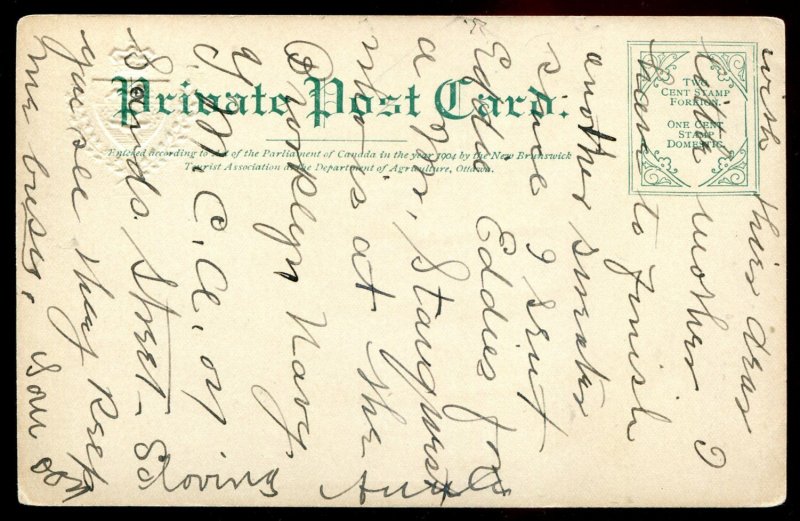 Private Post Card.
Entered according to Act of the Parliament of Canada in the year 1904 by the New Brunswick
Tourist Association at the Department of Agriculture, Ottawa.
TWO
CENT STAMP
FOREIGN.
ONE CENT
STAMP
DOMESTIC.
with this dear
little mother I
have to finish
another sweater
since I sent
Eddies for
a Mr.
who is at the
Brooklyn Navy,
Y.M.C.A. on
Sands. Street-
you see they keep
me busy.
Loving
Auntie